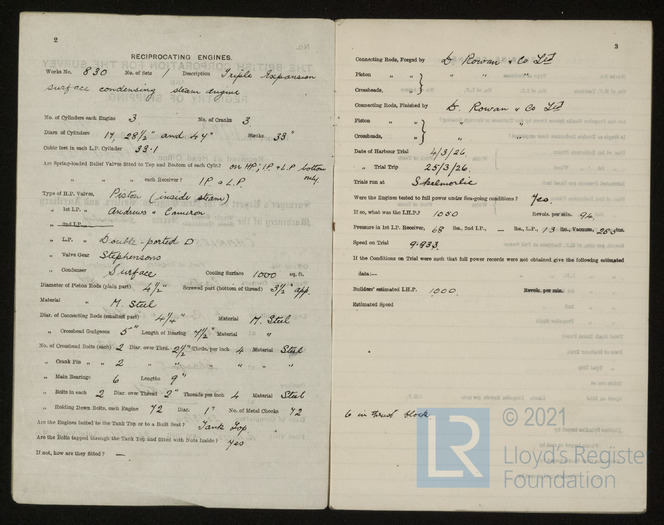 2
RECIPROCATING ENGINES.
Works No. 830 No. of Sets 1 Description Triple Expansion
surface condensing steam engine
No. of Cylinders each Engine 3 No. of Cranks 3
Diars. of Cylinders 17, 28½" and 44" Stroke 33"
Cubic feet in each L.P. Cylinder 33.1
Are Spring-loaded Relief Valves fitted to Top and Bottom of each Cylr.? on HP, IP & LP bottom only
" " each Receiver? IP & L.P.
Type of H.P. Valves, Piston (inside steam)
" 1st I.P. " Andrews & Cameron
" 2nd I.P. "
" L.P. " Double-ported D
" Valve Gear Stephensons
" Condenser Surface Cooling Surface 1000 sq. ft.
Diameter of Piston Rods (plain part) 4½" Screwed part (bottom of thread) 3½" app.
Material " M. Steel
Diar. of Connecting Rods (smallest part) 4¼" Material M. Steel
" Crosshead Gudgeons 5" Length of Bearing 7½" Material "
No. of Crosshead Bolts (each) 2 Diar. over Thrd. 2½" Thrds. per inch 4 Material Steel
" Crank Pin " " 2 " " " " "
" Main Bearings 6 Lengths 9"
" Bolts in each 2 Diar. over Thread 2" Threads per inch 4 Material Steel
" Holding Down Bolts, each Engine 72 Diar. 1" No. of Metal Chocks 72
Are the Engines bolted to the Tank Top or to a Built Seat? Tank Top
Are the Bolts tapped through the Tank Top and fitted with Nuts Inside? yes
If not, how are they fitted? —
3
Connecting Rods, Forged by D. Rowan & Co Ltd
Piston " " " "
Crossheads, "
Connecting Rods, Finished by D. Rowan & Co Ltd
Piston " " "
Crossheads, "
Date of Harbour Trial 4/3/26
" Trial Trip 25/3/26
Trials run at Skelmorlie
Were the Engines tested to full power under Sea-going conditions? Yes.
If so, what was the I.H.P.? 1050 Revols. per min. 94
Pressure in 1st I.P. Receiver, 68 lbs., 2nd I.P., — lbs., L.P., 13 lbs., Vacuum, ins.
Speed on Trial 9.933
If the Conditions on Trial were such that full power records were not obtained give the following estimated
data:—
Builders' estimated I.H.P. 1000 Revols. per min.
Estimated Speed
6 in thrust block
LR © 2021
Lloyd's Register
Foundation